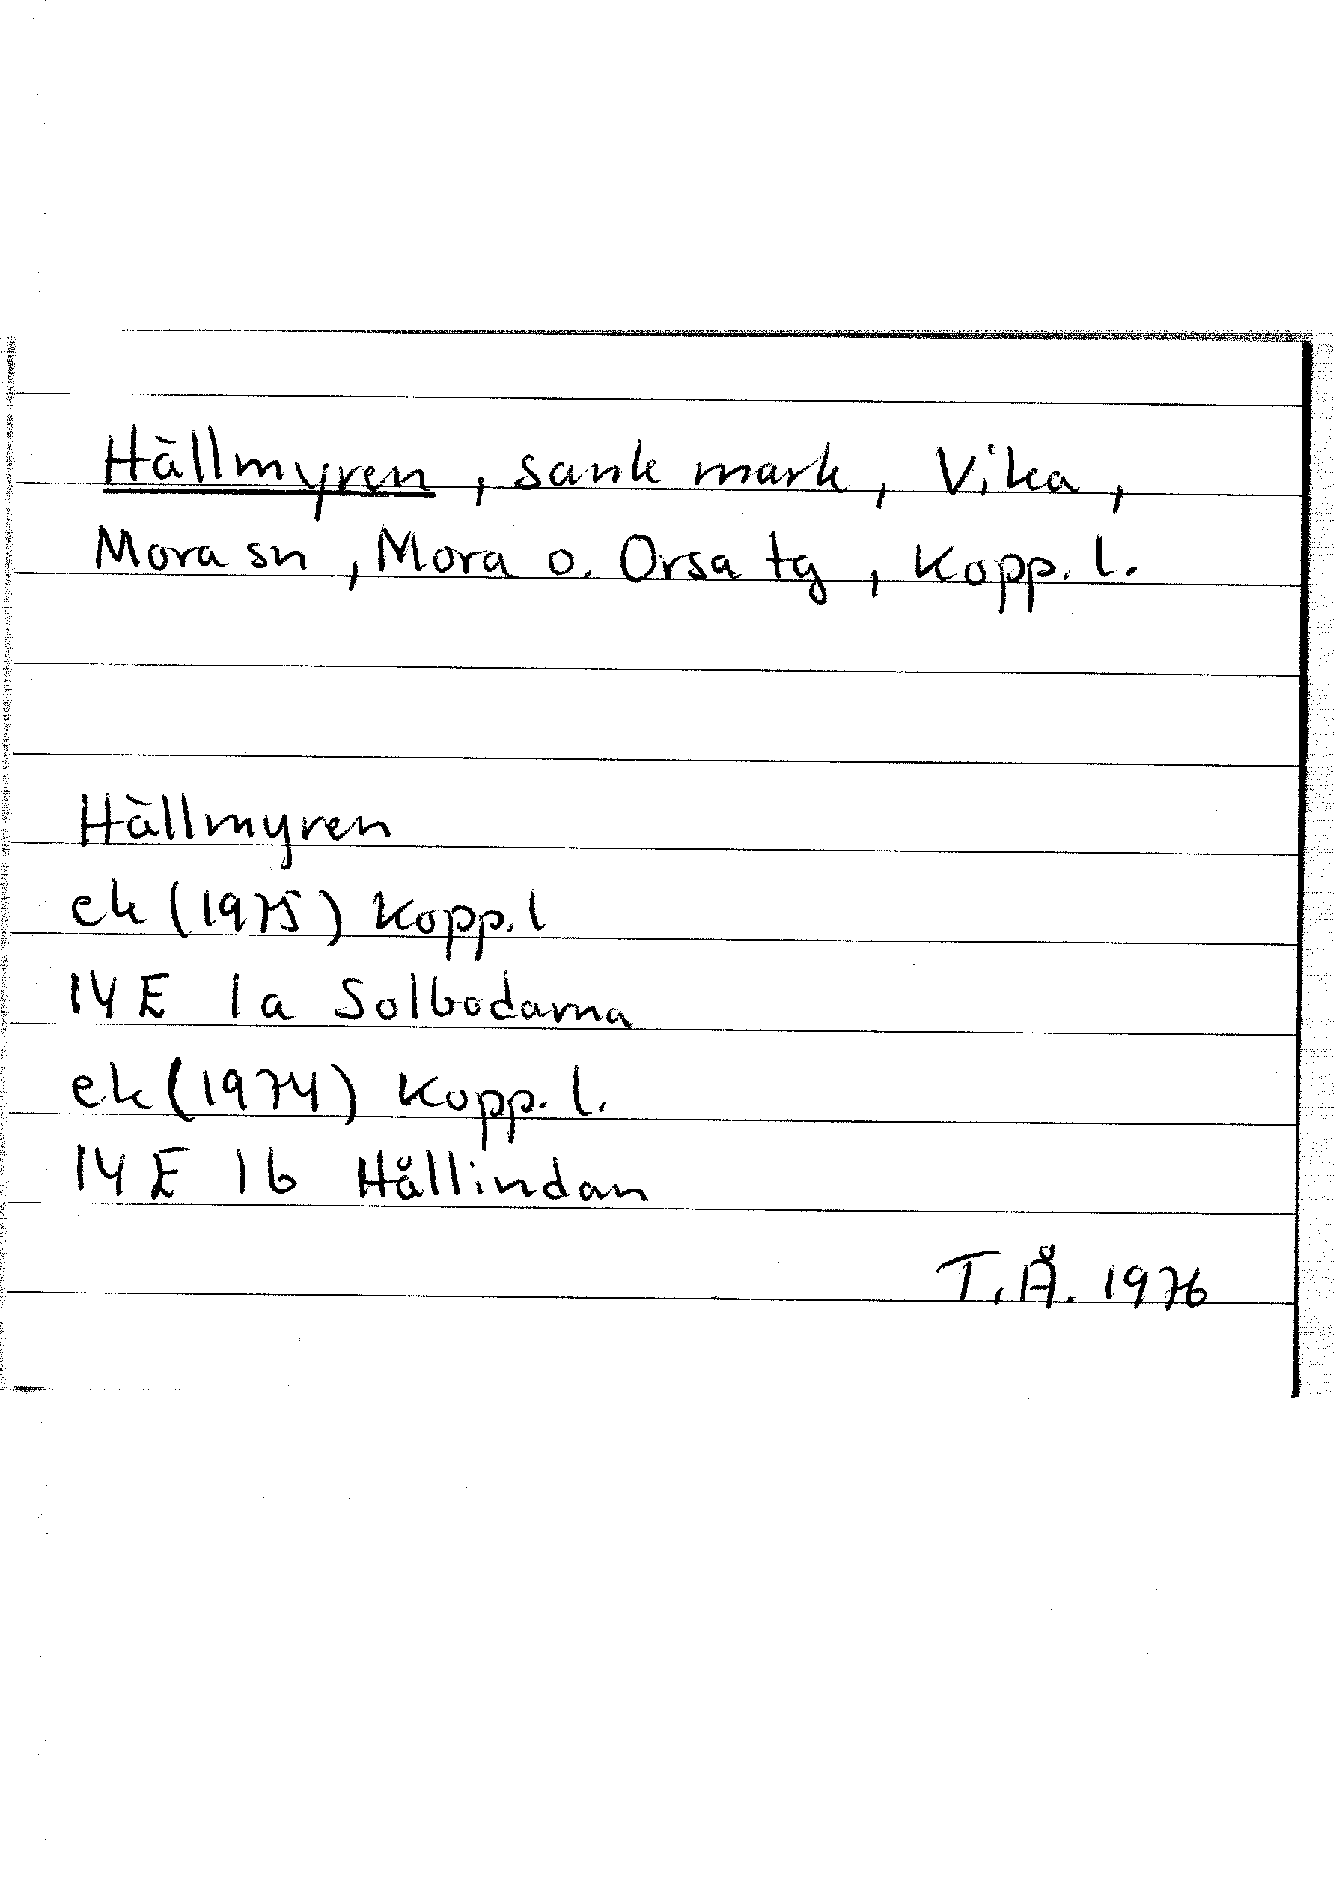 Hällmyren, sank mark, Vika,
Mora sn, Mora o. Orsa tg, Kopp. l.
Hällmyren
ek (1975) Kopp. l
14 E 1a Solbodarna
ek (1974) Kopp. l.
14 E 1b Hållindan
T.Å. 1976